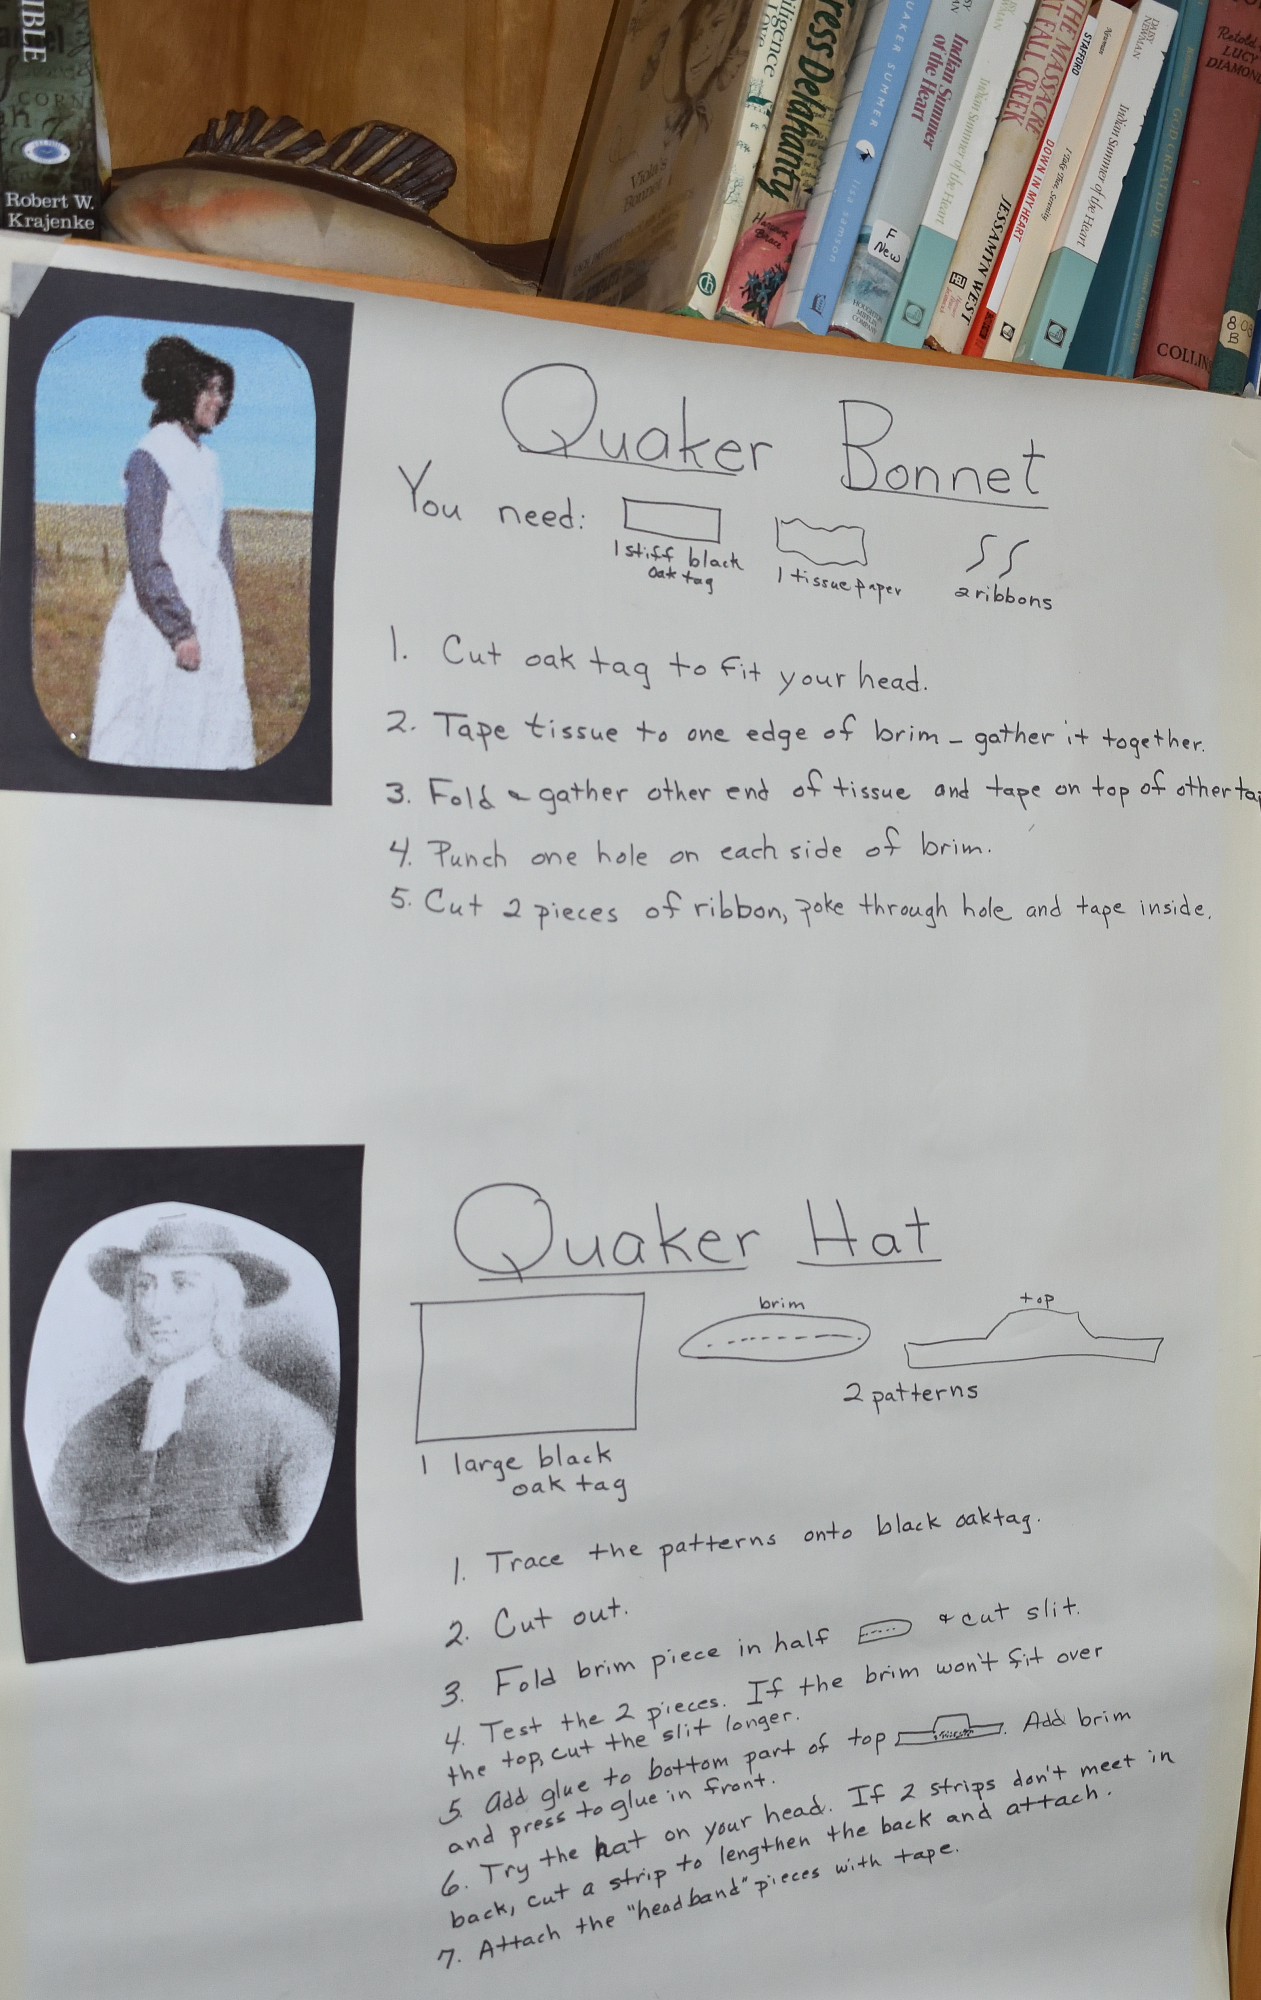 IBLE
CORN
Robert W.
Krajenke
Viola's
Bonnet
ligence
Love
ress Delahanty
Harcourt
Brace
UAKER SUMMER
lisa samson
Indian Summer
of the Heart
F
New
HOUGHTON
MIFFLIN
COMPANY
Indian Summer of the Heart
THE MASSACRE
AT FALL CREEK
JESSAMYN WEST
STAFFORD
DOWN IN MY HEART
Newman
I Take Thee, Serenity
DAISY
NEWMAN
Indian Summer of the Heart
GOD CREATED ME
Retold
LUCY
DIAMOND
COLLIN
Quaker Bonnet
You need:
1 stiff black
oak tag
1 tissue paper
2 ribbons
1. Cut oak tag to fit your head.
2. Tape tissue to one edge of brim - gather it together.
3. Fold & gather other end of tissue and tape on top of other ta
4. Punch one hole on each side of brim.
5. Cut 2 pieces of ribbon, poke through hole and tape inside.
Quaker Hat
brim
top
2 patterns
1 large black
oak tag
1. Trace the patterns onto black oaktag.
2. Cut out.
3. Fold brim piece in half & cut slit.
4. Test the 2 pieces. If the brim won't fit over
the top, cut the slit longer.
5. Add glue to bottom part of top. Add brim
and press to glue in front.
6. Try the hat on your head. If 2 strips don't meet in
back, cut a strip to lengthen the back and attach.
7. Attach the "headband" pieces with tape.